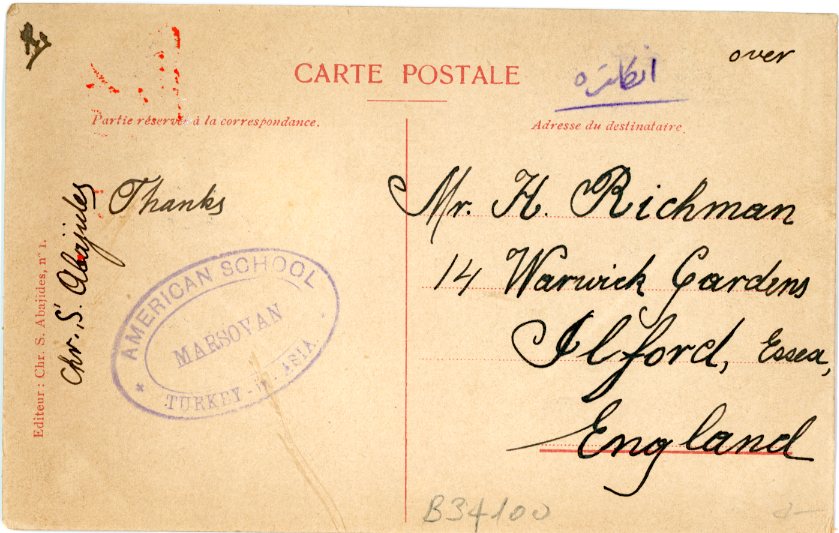 CARTE POSTALE
انكلتره
over
Partie réservée à la correspondance.
Adresse du destinataire.
Thanks
Chr. S. Abajides
Editeur : Chr. S. Abajides, n° 1.
AMERICAN SCHOOL
MARSOVAN
TURKEY - IN - ASIA.
Mr. H. Richman
14 Warwick Gardens
Ilford, Essex,
England
B34100